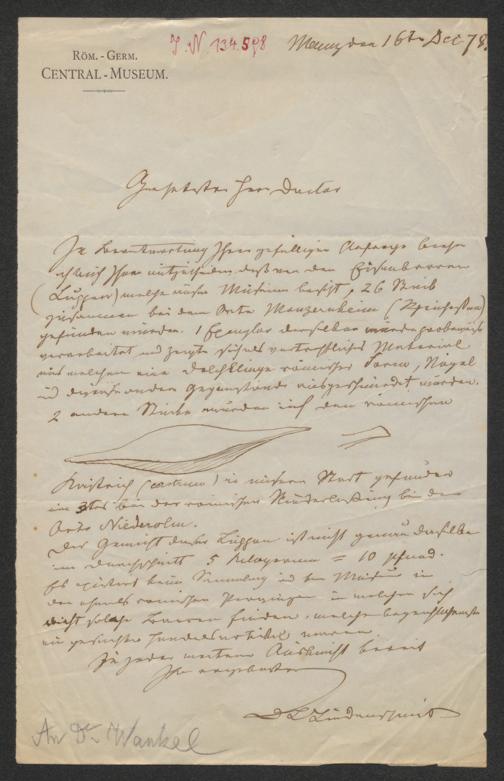 RÖM. - GERM.
CENTRAL - MUSEUM.
J. N 134.598
Mainz den 16ten Dec 78.
Geehrtester Herr Doctor
In Beantwortung Ihrer gefälligen Anfrage
Ihnen mitzutheilen daß von den Eisenbarren
(Luppen) welche unser Museum besitzt, 26 Stück
zusammen bei dem Orte Monzernheim (Rheinhessen)
gefunden wurden. 1 Exemplar derselben wurde probeweise
verarbeitet und zeigte sich als vortreffliches Material
aus welchem eine Dolchklinge römischer Form, Nägel
und Gegenstände ausgeschmiedet wurden.
2 andere Stücke wurden auf dem römischen
(castrum) in unserer Stadt gefunden
ein 3tes bei der römischen Niederlassung bei dem
Orte Niederolm.
Das Gewicht dieser Luppen ist nicht genau dasselbe
im Durchschnitt 5 Kilogramm = 10 Pfund.
Es existirt keine Sammlung und kein Museum in
den römischen Provinzen in welchen sich
nicht solche Barren finden, welche
ein Handelsartikel waren.
Zu jeder weiteren Auskunft bereit
Ihr ergebenster
L Lindenschmit
An Dr. Wankel